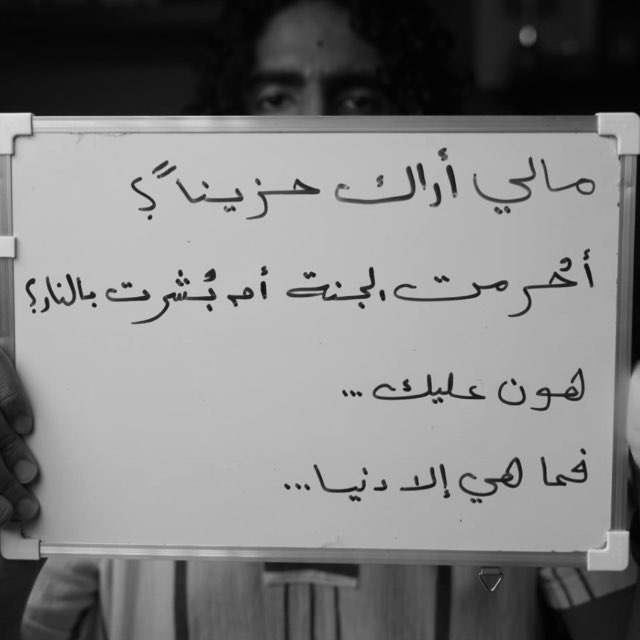 مالي أراك حزيناً؟
أحُرمت الجنة أم بُشرت بالنار؟
هون عليك...
فما هي إلا دنيا...